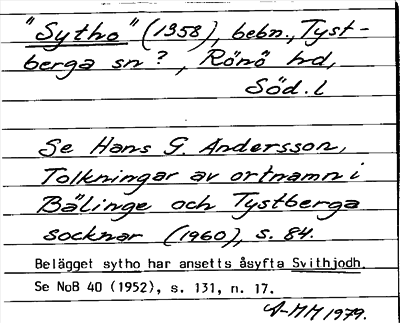 "Sytho" (1358), bebn., Tyst-
berga sn?, Rönö hd,
Söd. l
Se Hans G. Andersson,
Tolkningar av ortnamn i
Bälinge och Tystberga
socknar (1960), s. 84.
Belägget sytho har ansetts åsyfta Svithjodh.
Se NoB 40 (1952), s. 131, n. 17.
A-MM 1979.